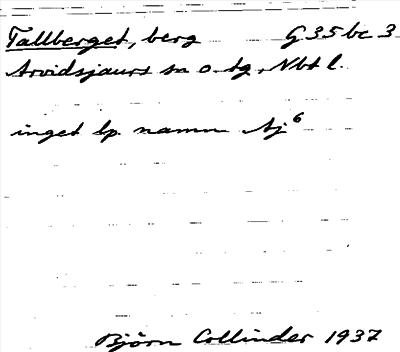 Tallberget, berg G 35 bc 3
Arvidsjaurs sn o. tg, Nbt l.
inget lp. namn Aj 6
Björn Collinder 1937